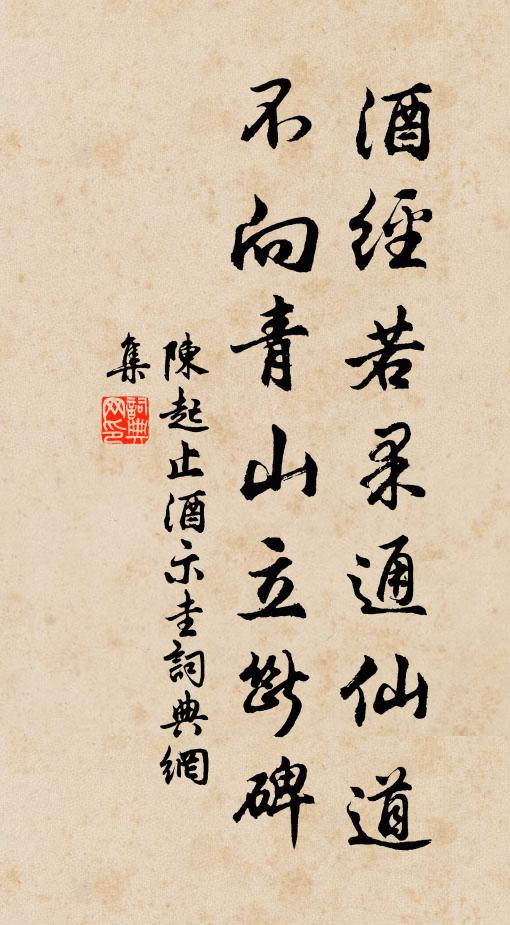 酒經若果通仙道
不向青山立斷碑
陳起止酒示圭詞典網
集
詞典
网印